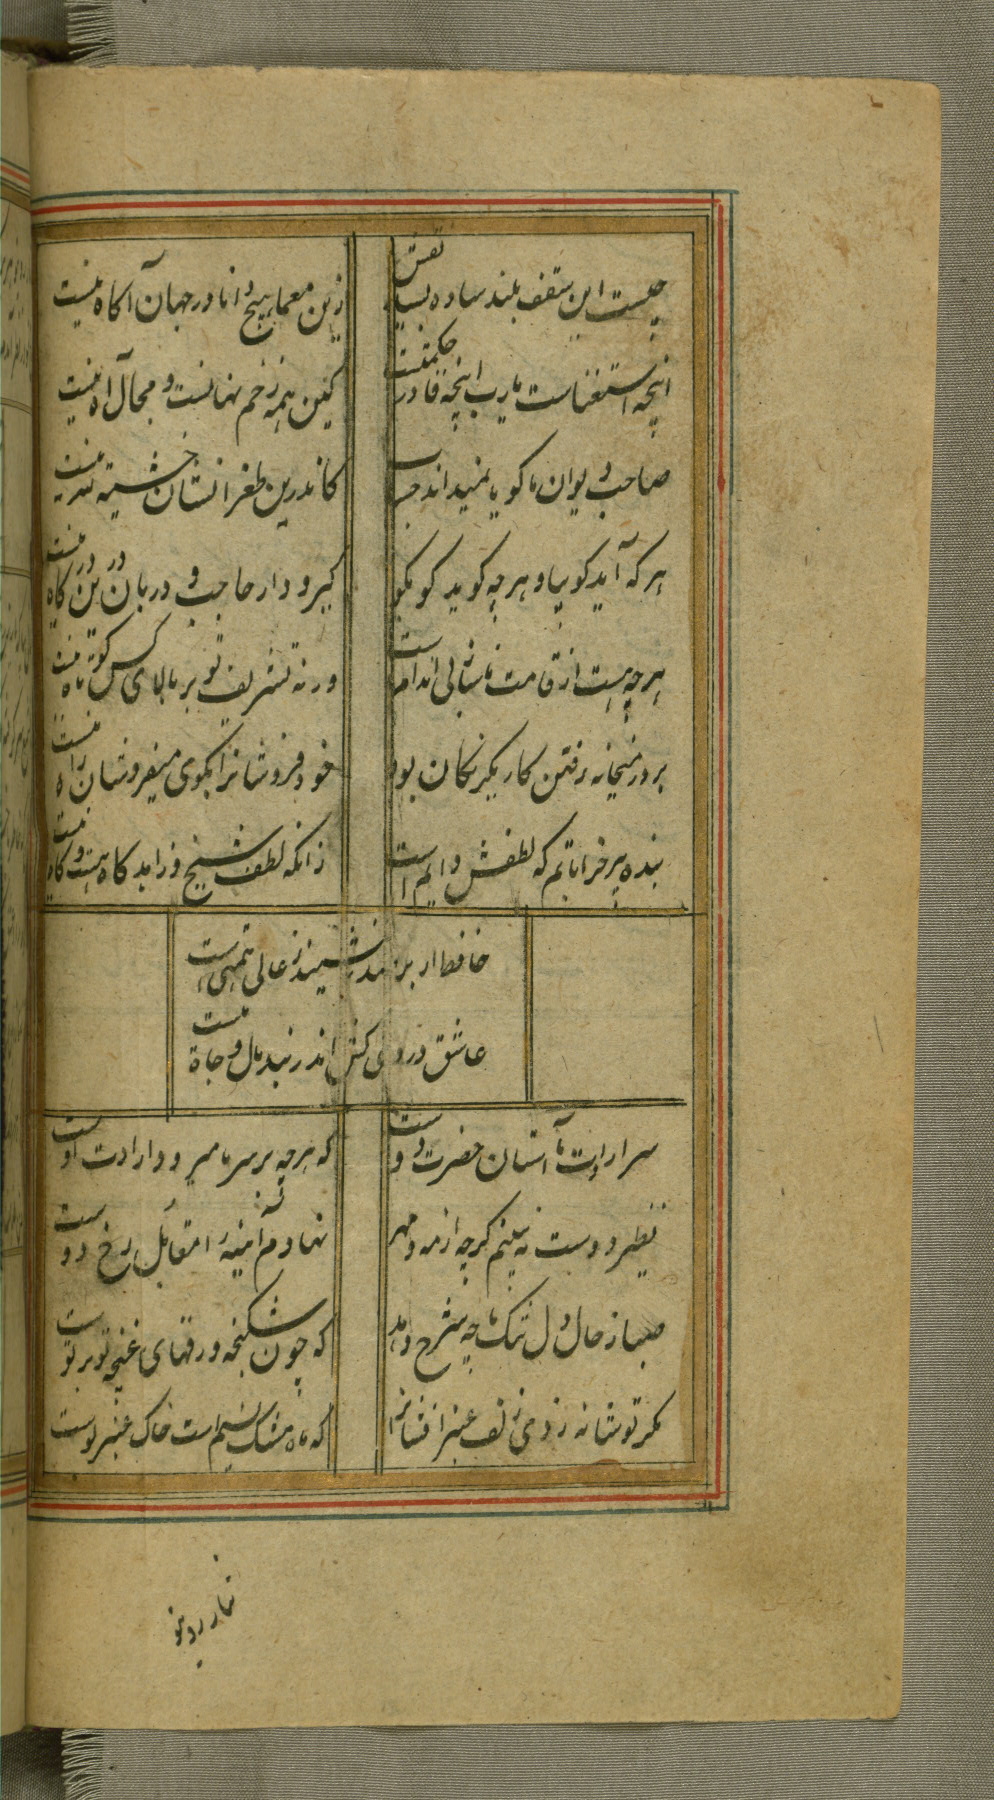 چیست این سقف بلند ساده بسیار نقش
زین معما هیچ دانا در جهان آکاه نیست
اینچه استغناست یارب اینچه قادر حکمتست
کین همه زخم نهانست و مجال آه نیست
صاحب دیوان ما کویا نمیداند حساب
کاندرین طغرا نشان حسبة لله نیست
هر که آید کو بیا و هر چه کوید کو بکو
کیر و دار حاجب و دربان درین درکاه نیست
هر چه هست از قامت ناساز بی اندام ماست
ورنه تشریف تو بر بالای کس کوتاه نیست
بر در میخانه رفتن کار یکرنکان بود
خود فروشانرا بکوی میفروشان راه نیست
بنده پیر خراباتم که لطفش دایم است
زانکه لطف شیخ و زاهد کاه هست و کاه نیست
حافظ ار بر صدر ننشیند ز عالی همتی است
عاشق دردی کش اندر بند مال و جاه نیست
سر ارادت ما آستان حضرت دوست
که هر چه بر سر ما میرود ارادت اوست
نظیر دوست ندیدم اکرچه از مه و مهر
نهادم آینه‌ها در مقابل رخ دوست
صبا ز حال دل تنک ما چه شرح دهد
که چون شکنج ورقهای غنچه تو بر توست
مکر تو شانه زدی زلف عنبر افشانرا
که باد مشک نسیم است خاک عنبر بوست
نثار روی تو